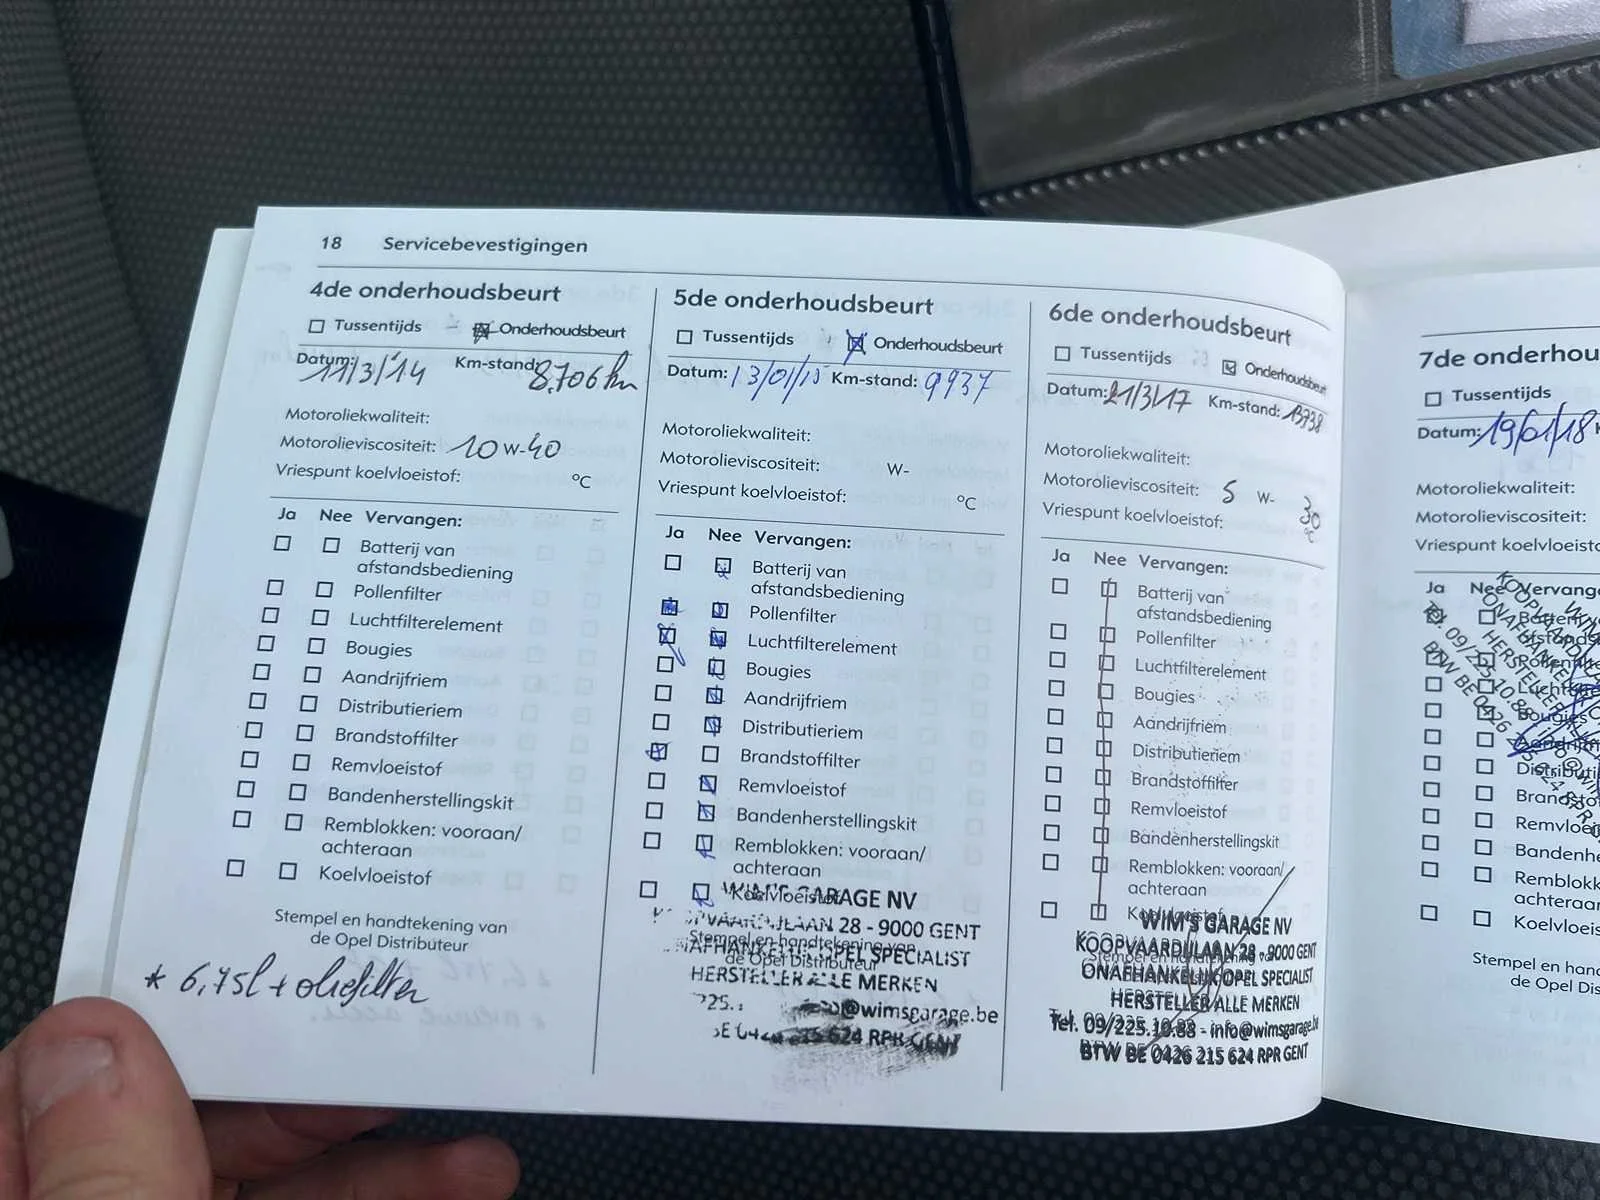 18 Servicebevestigingen
4de onderhoudsbeurt
Tussentijds Onderhoudsbeurt
Datum: 11/3/14 Km-stand: 8.706 km
Motoroliekwaliteit:
Motorolieviscositeit: 10 W-40
Vriespunt koelvloeistof: °C
Ja Nee Vervangen:
Batterij van
afstandsbediening
Pollenfilter
Luchtfilterelement
Bougies
Aandrijfriem
Distributieriem
Brandstoffilter
Remvloeistof
Bandenherstellingskit
Remblokken: vooraan/
achteraan
Koelvloeistof
Stempel en handtekening van
de Opel Distributeur
* 6,75l + oliefilter
5de onderhoudsbeurt
Tussentijds Onderhoudsbeurt
Datum: 13/01/15 Km-stand: 9937
Motoroliekwaliteit:
Motorolieviscositeit: W-
Vriespunt koelvloeistof: °C
Ja Nee Vervangen:
Batterij van
afstandsbediening
Pollenfilter
Luchtfilterelement
Bougies
Aandrijfriem
Distributieriem
Brandstoffilter
Remvloeistof
Bandenherstellingskit
Remblokken: vooraan/
achteraan
Koelvloeistof
WIM'S GARAGE NV
28 - 9000 GENT
Stempel en handtekening van
OPEL SPECIALIST
de Opel Distributeur
HERSTELLER ALLE MERKEN
@wimsgarage.be
624 RPR GENT
6de onderhoudsbeurt
Tussentijds Onderhoudsbeurt
Datum: 21/3/17 Km-stand: 13738
Motoroliekwaliteit:
Motorolieviscositeit: 5 W- 30
Vriespunt koelvloeistof: °C
Ja Nee Vervangen:
Batterij van
afstandsbediening
Pollenfilter
Luchtfilterelement
Bougies
Aandrijfriem
Distributieriem
Brandstoffilter
Remvloeistof
Bandenherstellingskit
Remblokken: vooraan/
achteraan
Koelvloeistof
WIM'S GARAGE NV
KOOPVAARDIJLAAN 28 - 9000 GENT
ONAFHANKELIJK OPEL SPECIALIST
HERSTELLER ALLE MERKEN
Tel. 09/225.10.88 - info@wimsgarage.be
BTW BE 0426 215 624 RPR GENT
7de onderhou
Tussentijds
Datum: 19/01/18 K
Motoroliekwaliteit:
Motorolieviscositeit:
Vriespunt koelvloeisto
Ja Nee Vervang
Batterij v
afstands
Pollenfilte
Luchtf
Bougies
Aandrijfri
Distributi
Brandsto
Remvloei
Bandenhe
Remblokk
achteraa
Koelvloeis
Stempel en hand
de Opel Dis